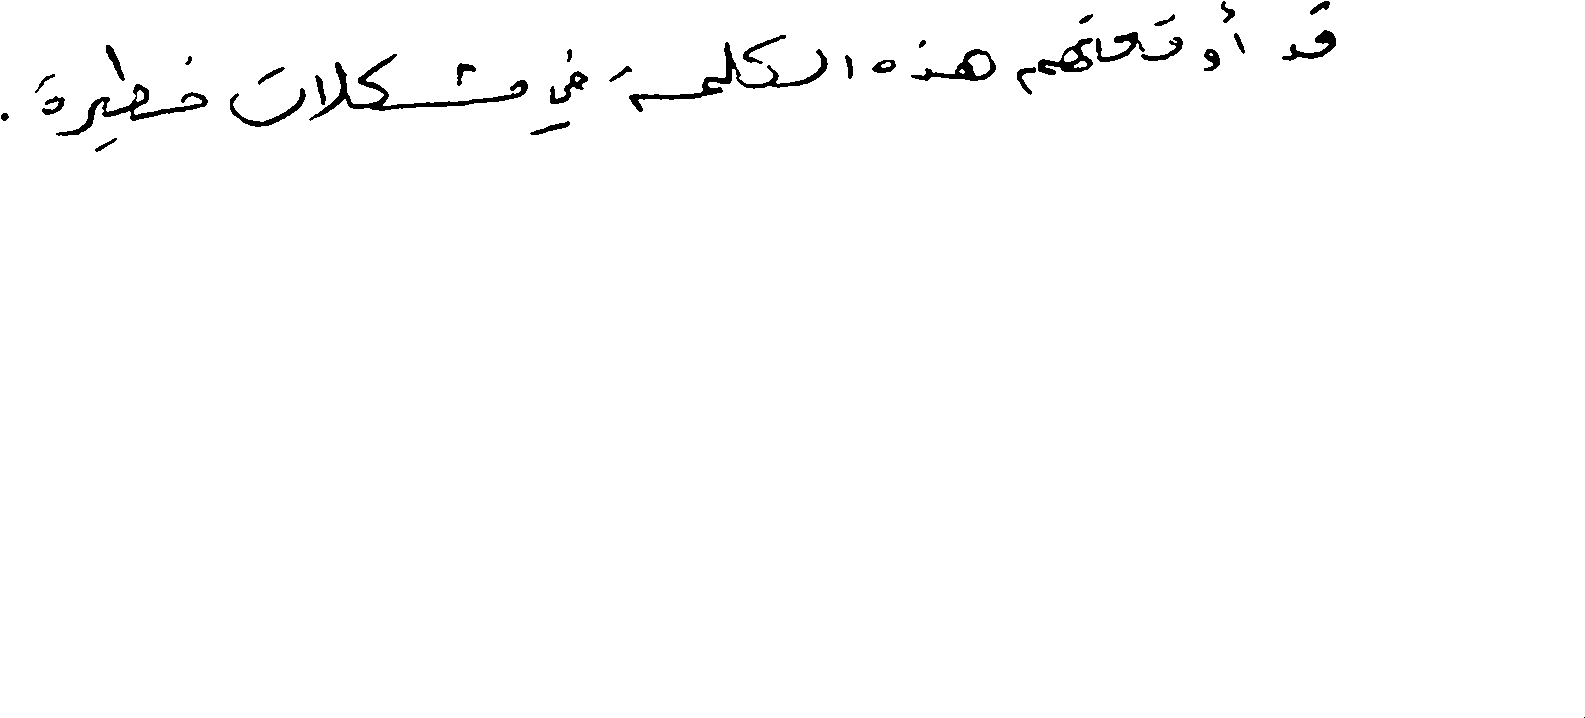 قد أوقعتهم هذه الكلمة في مشكلات خطيرة .